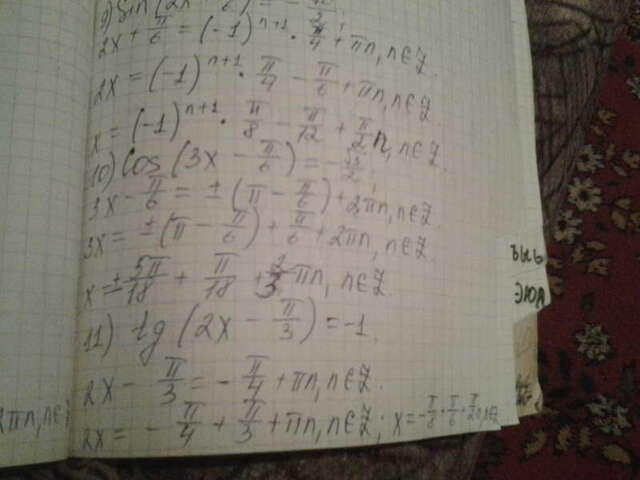 9) sin(2x + π/6) = -
2x + π/6 = (-1)^(n+1) · π/4 + πn, n∈Z.
2x = (-1)^(n+1) · π/4 - π/6 + πn, n∈Z
x = (-1)^(n+1) · π/8 - π/12 + π/2 n, n∈Z.
10) cos(3x - π/6) = -√3/2;
3x - π/6 = ±(π - π/6) + 2πn, n∈Z.
3x = ±(π - π/6) + π/6 + 2πn, n∈Z.
x = ± 5π/18 + π/18 + 2/3 πn, n∈Z.
11) tg(2x - π/3) = -1.
2x - π/3 = - π/4 + πn, n∈Z.
2x = - π/4 + π/3 + πn, n∈Z; x = - π/8 + π/6 + π/2 n, n∈Z
2πn, n∈